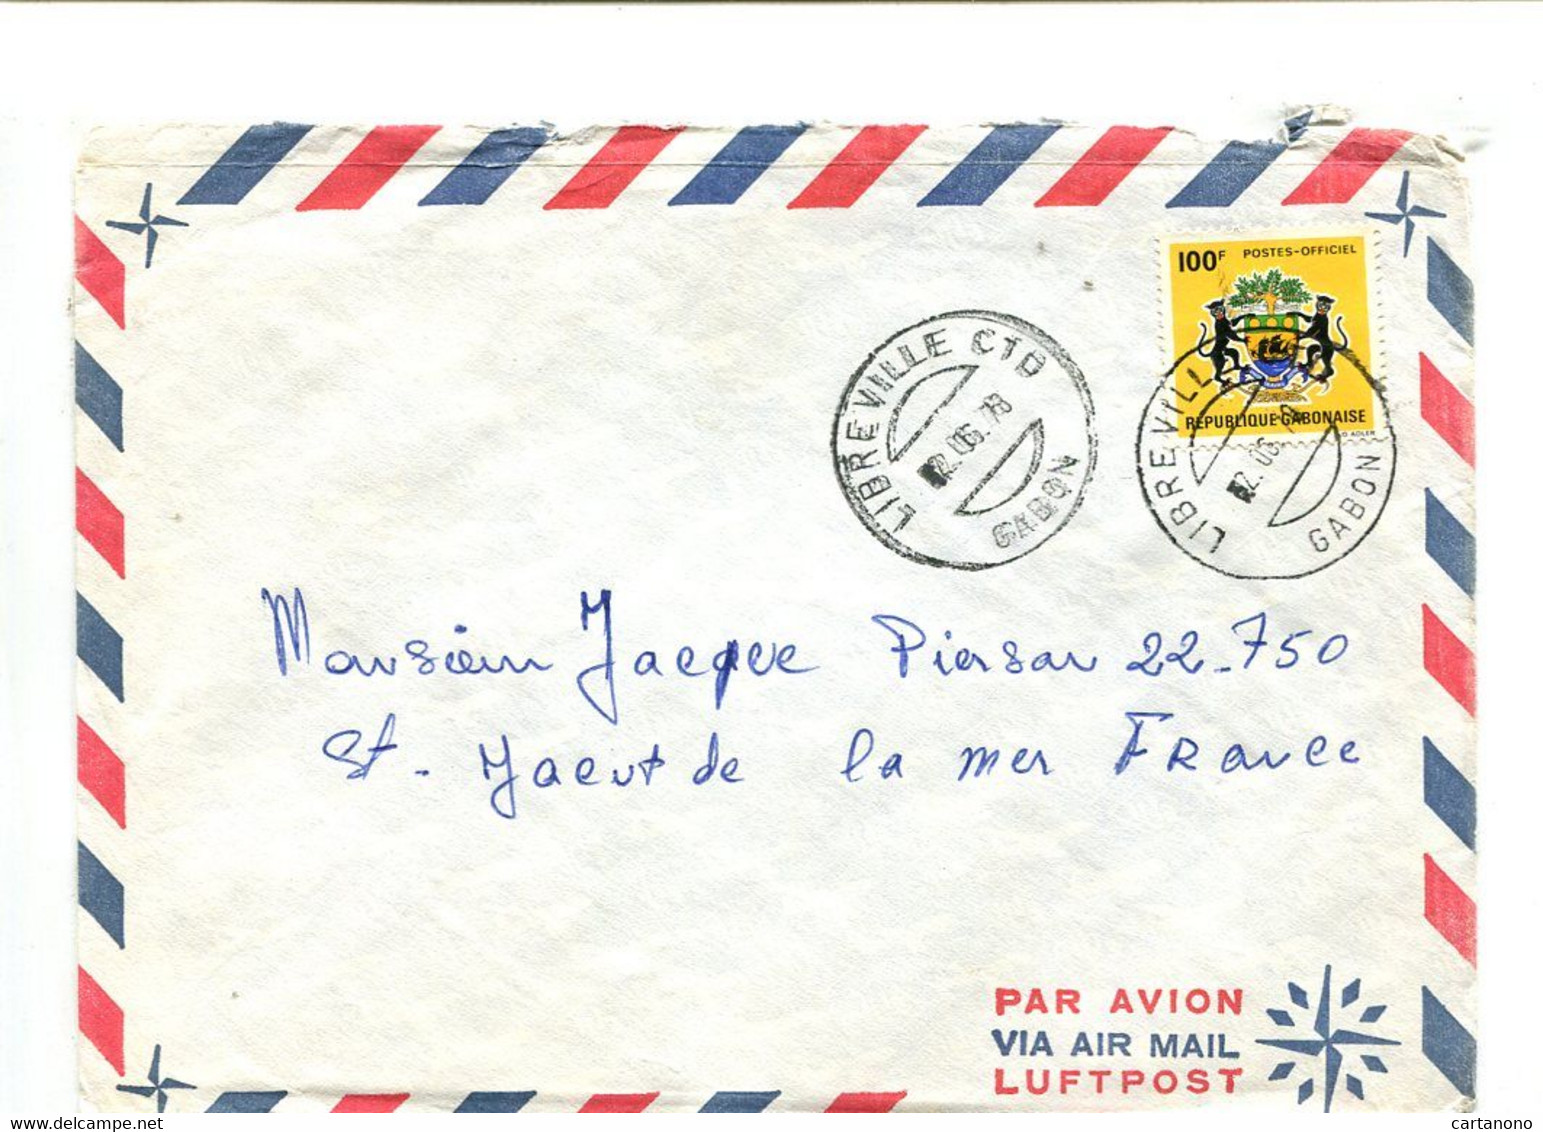 100F POSTES-OFFICIEL
REPUBLIQUE GABONAISE
O ADLER
LIBREVILLE CTD
02.06.78
GABON
LIBREVILL
02.06
GABON
Monsieur Jacque Piersan 22-750
St. Jacut de la mer France
PAR AVION
VIA AIR MAIL
LUFTPOST
www.delcampe.net
cartanono